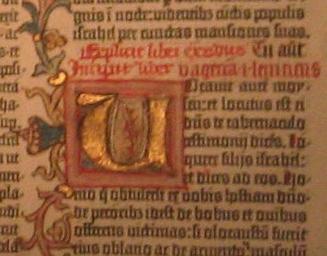 quis ī nocte: videntibꝰ cūctis populis
israhel per cunctas mansiones suas.
Explicit liber exodus
Incipit liber vagecra · i · leuiticus
Vocauit aut̄ moy-
sen: et locutus est ei
dn̄s de tabernaclo
testimonij dicēs. Lo-
quere filijs israhel:
et dices ad eos. Ho-
mo q̇ obtulerit ex vobis hostiam dn̄o
de pecoribꝰ idest de bobus et ouibus
offerens victimas: si olocaustū fuerit
eius oblatio ac de armento: masculū